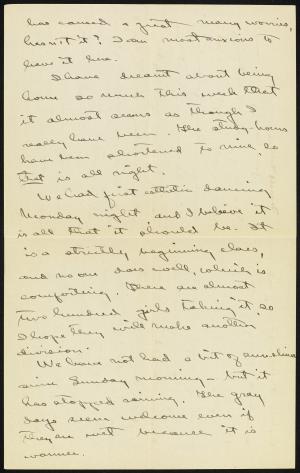 has caused a great many worries,
hasn't it? I am most anxious to
have it here.
I have dreamt about being
home so much this week that
it almost seems as though I
really have been. The study-hours
have been shortened to nine, so
that is all right.
We had first esthetic dancing
Monday night and I believe it
is all that it should be. It
is a strictly beginning class,
and no one does well, which is
comforting. There are almost
two hundred girls taking it, so
I hope they will make another
division.
We have not had a bit of sunshine
since Sunday morning - but it
has stopped raining. The gray
days seem welcome even if
they are wet because it is
warmer.